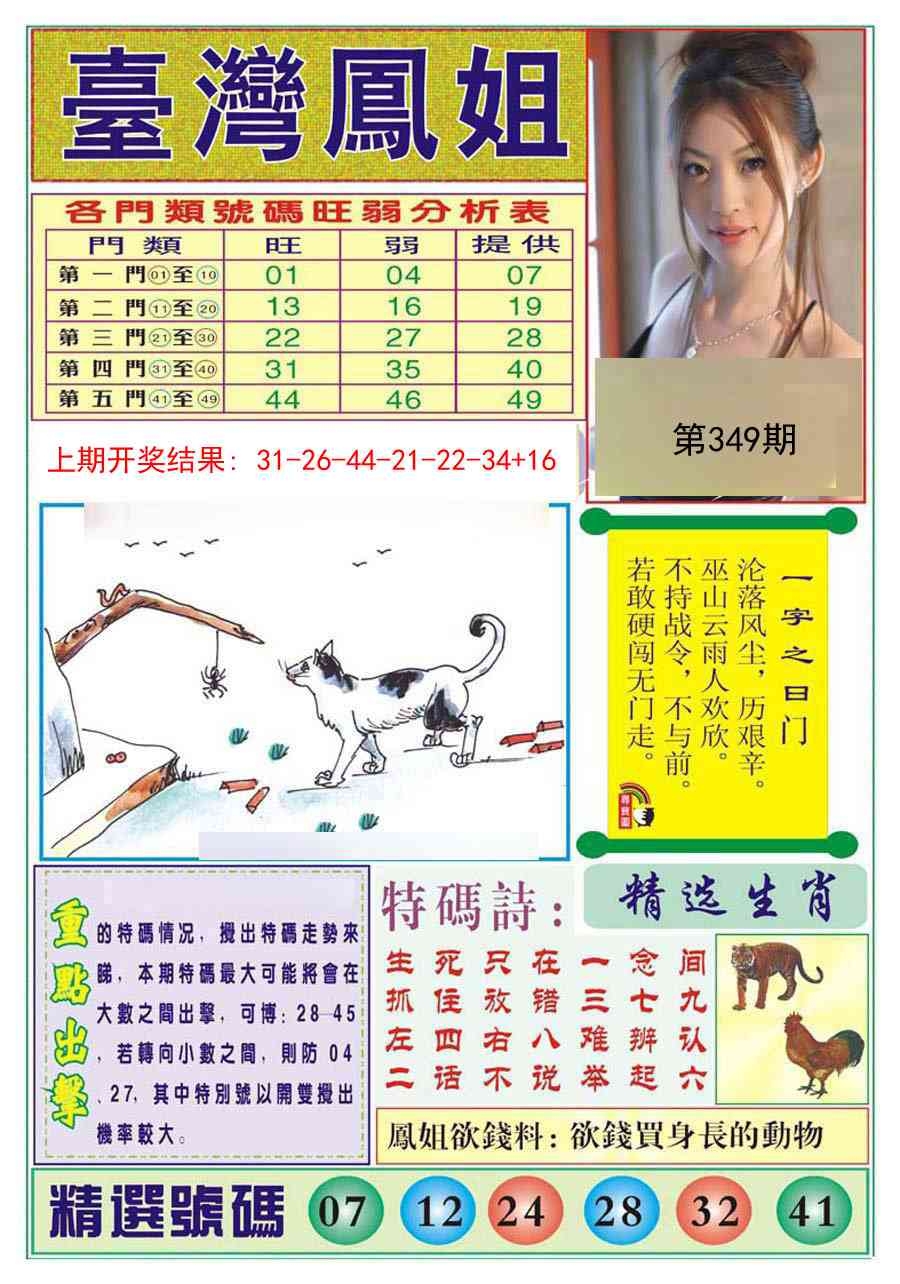 臺灣鳳姐
各門類號碼旺弱分析表
門類 旺 弱 提供
第一門01至10 01 04 07
第二門11至20 13 16 19
第三門21至30 22 27 28
第四門31至40 31 35 40
第五門41至49 44 46 49
第349期
上期开奖结果: 31-26-44-21-22-34+16
一字之曰门
沦落风尘，历艰辛。
巫山云雨人欢欣。
不持战令，不与前。
若敢硬闯无门走。
尋寶圖
重點出擊
的特碼情况，攪出特碼走勢來
睇，本期特碼最大可能將會在
大數之間出擊，可博：28—45
，若轉向小數之間，則防 04
、27，其中特別號以開雙攪出
機率較大。
特碼詩：
生死只在一念间
抓住放错三七九
左四右八难辨认
二话不说举起六
精选生肖
鳳姐欲錢料：欲錢買身長的動物
精選號碼 07 12 24 28 32 41